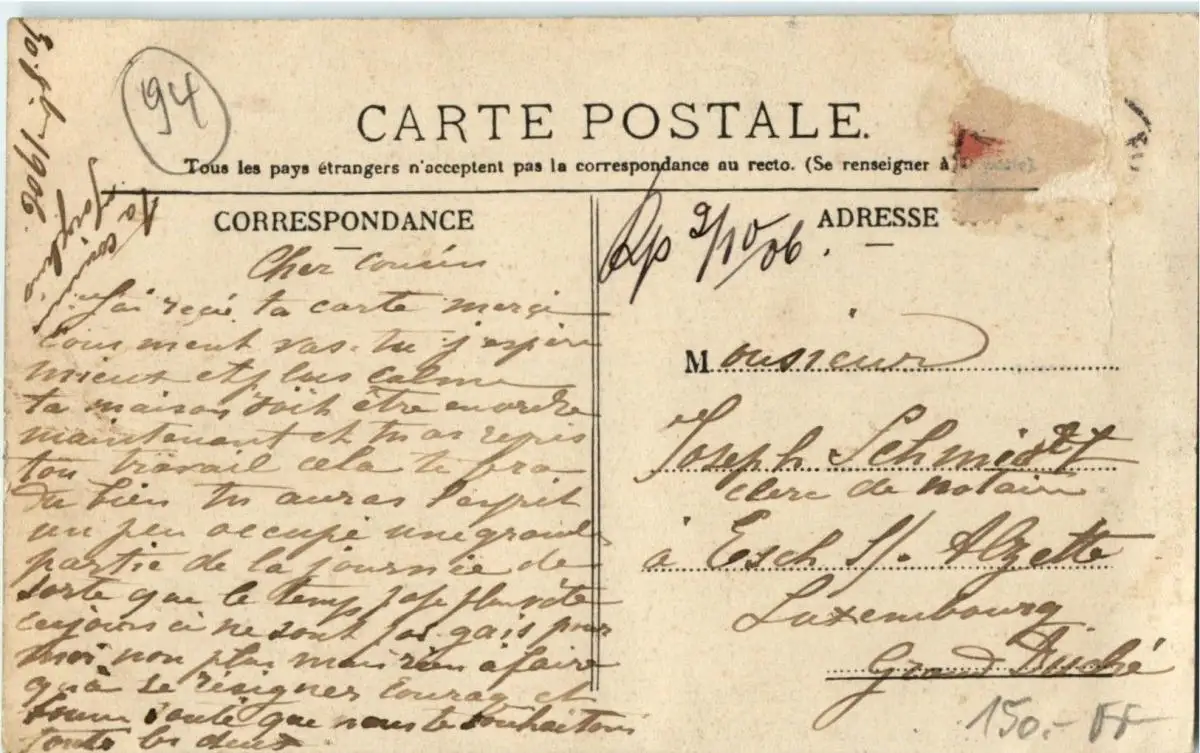 94
CARTE POSTALE.
Tous les pays étrangers n'acceptent pas la correspondance au recto. (Se renseigner à
CORRESPONDANCE
ADRESSE
1906.
Ta cousine
Rp 9/10 06.
Cher Cousin
J'ai reçu ta carte merçi
Comment vas-tu j'espère
mieux et plus calme
ta maison doit être en ordre
maintenant et tu as repris
ton travail cela te fra
du bien tu auras l'esprit
un peu occupé une grande
partie de la journée de
sorte que le temps passe plus vite
ces jours ci ne sont pas gais pour
moi non plus mais rien à faire
qu'à se résigner Courag et
bonne santé que nous te souhaitons
toute les deux
Monsieur
Joseph Schmidt
clerc de notaire
à Esch s/. Alzette
Luxembourg
Grand Duché
150.- FF